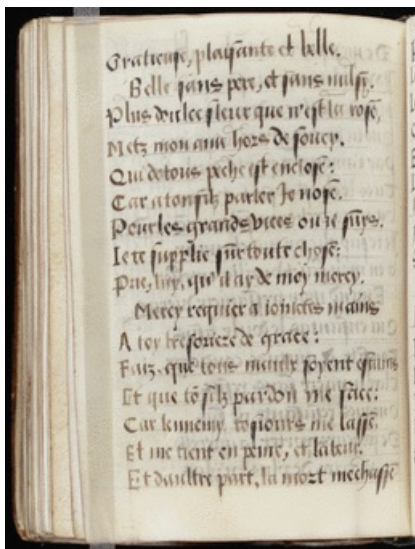 Gratieuse, plaisante et belle.
Belle sans pere, et sans nulsy.
Plus doulce fleur que n'est la rose,
Metz mon ame hors de soucy.
Qui de tous peche est enclose:
Car a ton filz parler Je n'ose.
Pour les grands vices ou ie suys.
Ie te supplie sur toute chose:
Prie, luy, qu'il ay de moy mercy.
Mercy requier a ioinctes mains
A toy tresoriere de grace:
Faiz que tous maulx soyent
Et que tō filz pardon me face:
Car lennemy tosiours me lasse
Et me tient en peine, et labeur.
Et daultre part, la mort mechasse